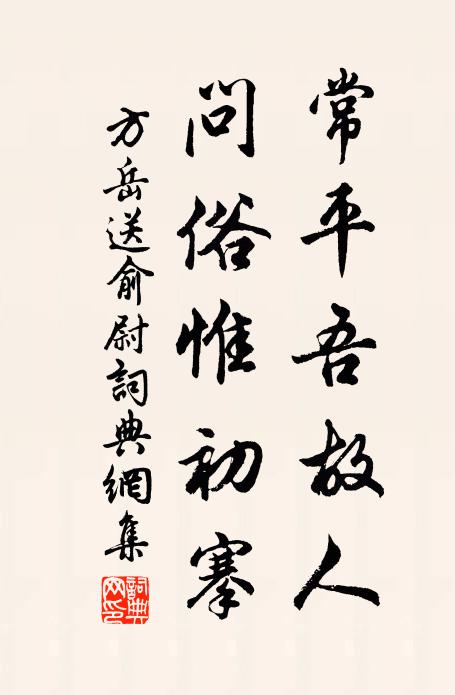 常平吾故人
問俗惟初搴
方岳送俞尉詞典網集
詞典網印